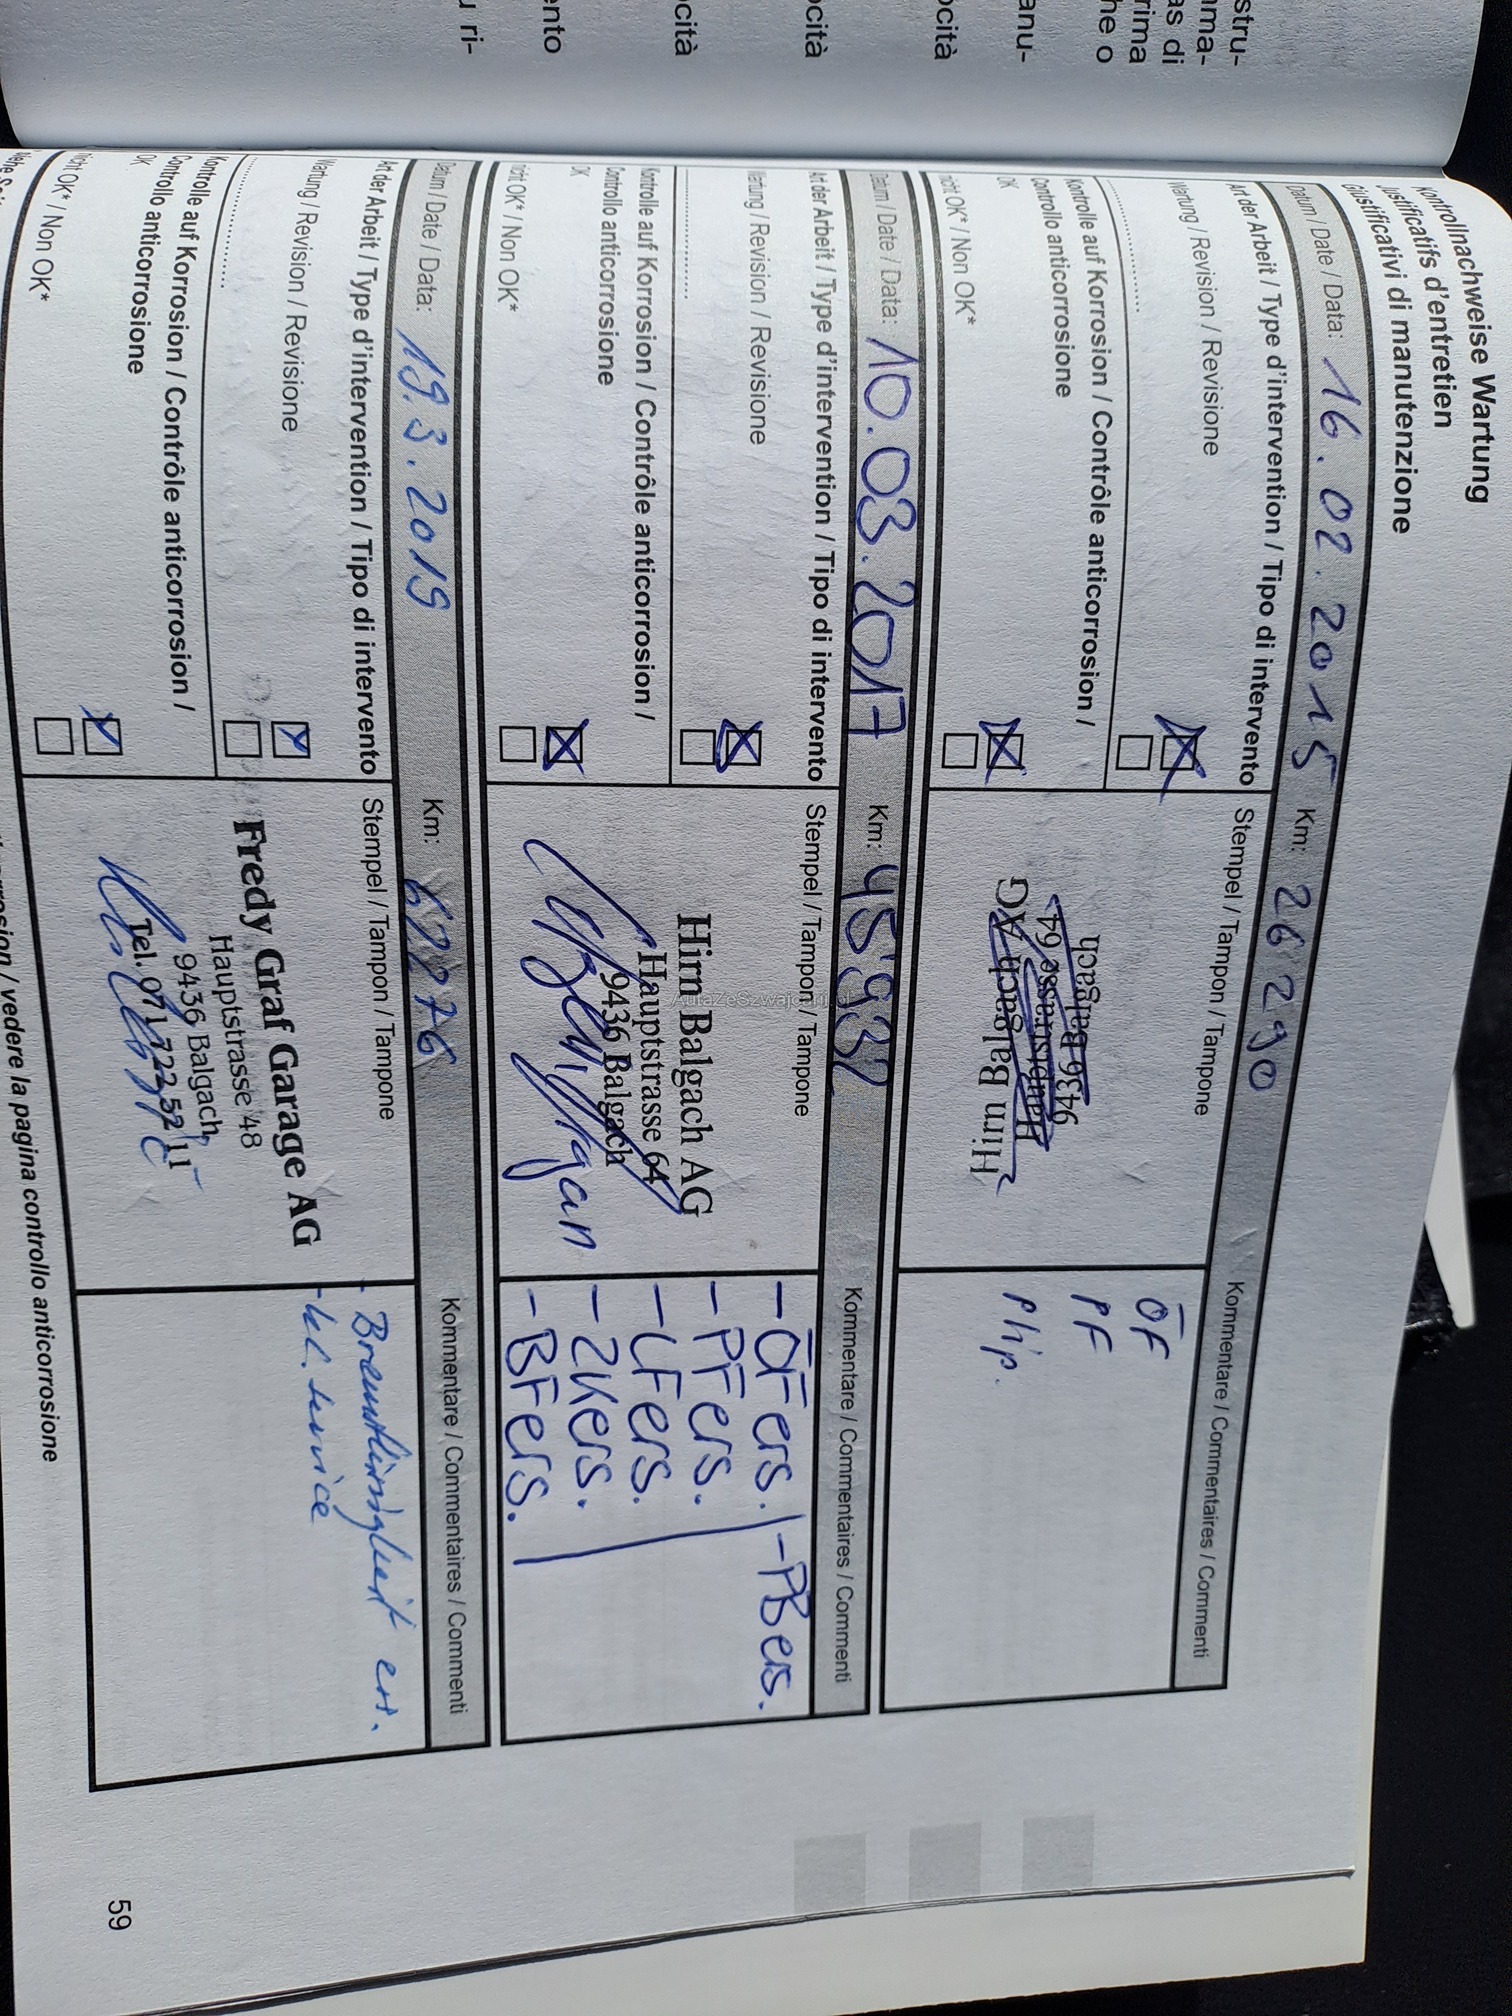 stru-
ma-
as di
rima
he o
anu-
ocità
ocità
ocità
ento
u ri-
Kontrollnachweise Wartung
Justificatifs d'entretien
Giustificativi di manutenzione
Datum / Date / Data: 16.02.2015 Km: 26290
Art der Arbeit / Type d'intervention / Tipo di intervento Stempel / Tampon / Tampone Kommentare / Commentaires / Commenti
Wartung / Revision / Revisione
Kontrolle auf Korrosion / Contrôle anticorrosion /
Controllo anticorrosione
OK
nicht OK* / Non OK*
Hirn Balgach AG
Hauptstrasse 64
9436 Balgach
ÖF
PF
Datum / Date / Data: 10.03.2017 Km: 45932
Art der Arbeit / Type d'intervention / Tipo di intervento Stempel / Tampon / Tampone Kommentare / Commentaires / Commenti
Wartung / Revision / Revisione
Kontrolle auf Korrosion / Contrôle anticorrosion /
Controllo anticorrosione
OK
nicht OK* / Non OK*
Hirn Balgach AG
Hauptstrasse 64
9436 Balgach
- ÖFers. / - PBers.
- PFers.
- LFers.
- ZKers.
- BFers.
Datum / Date / Data: 19.3.2019 Km: 62276
Art der Arbeit / Type d'intervention / Tipo di intervento Stempel / Tampon / Tampone Kommentare / Commentaires / Commenti
Wartung / Revision / Revisione
Kontrolle auf Korrosion / Contrôle anticorrosion /
Controllo anticorrosione
OK
nicht OK* / Non OK*
Fredy Graf Garage AG
Hauptstrasse 48
9436 Balgach
Tel. 071 722 52 11
- Bremsflüssigkeit ers.
service
/ vedere la pagina controllo anticorrosione
59
AutaZeSzwajcarii.pl